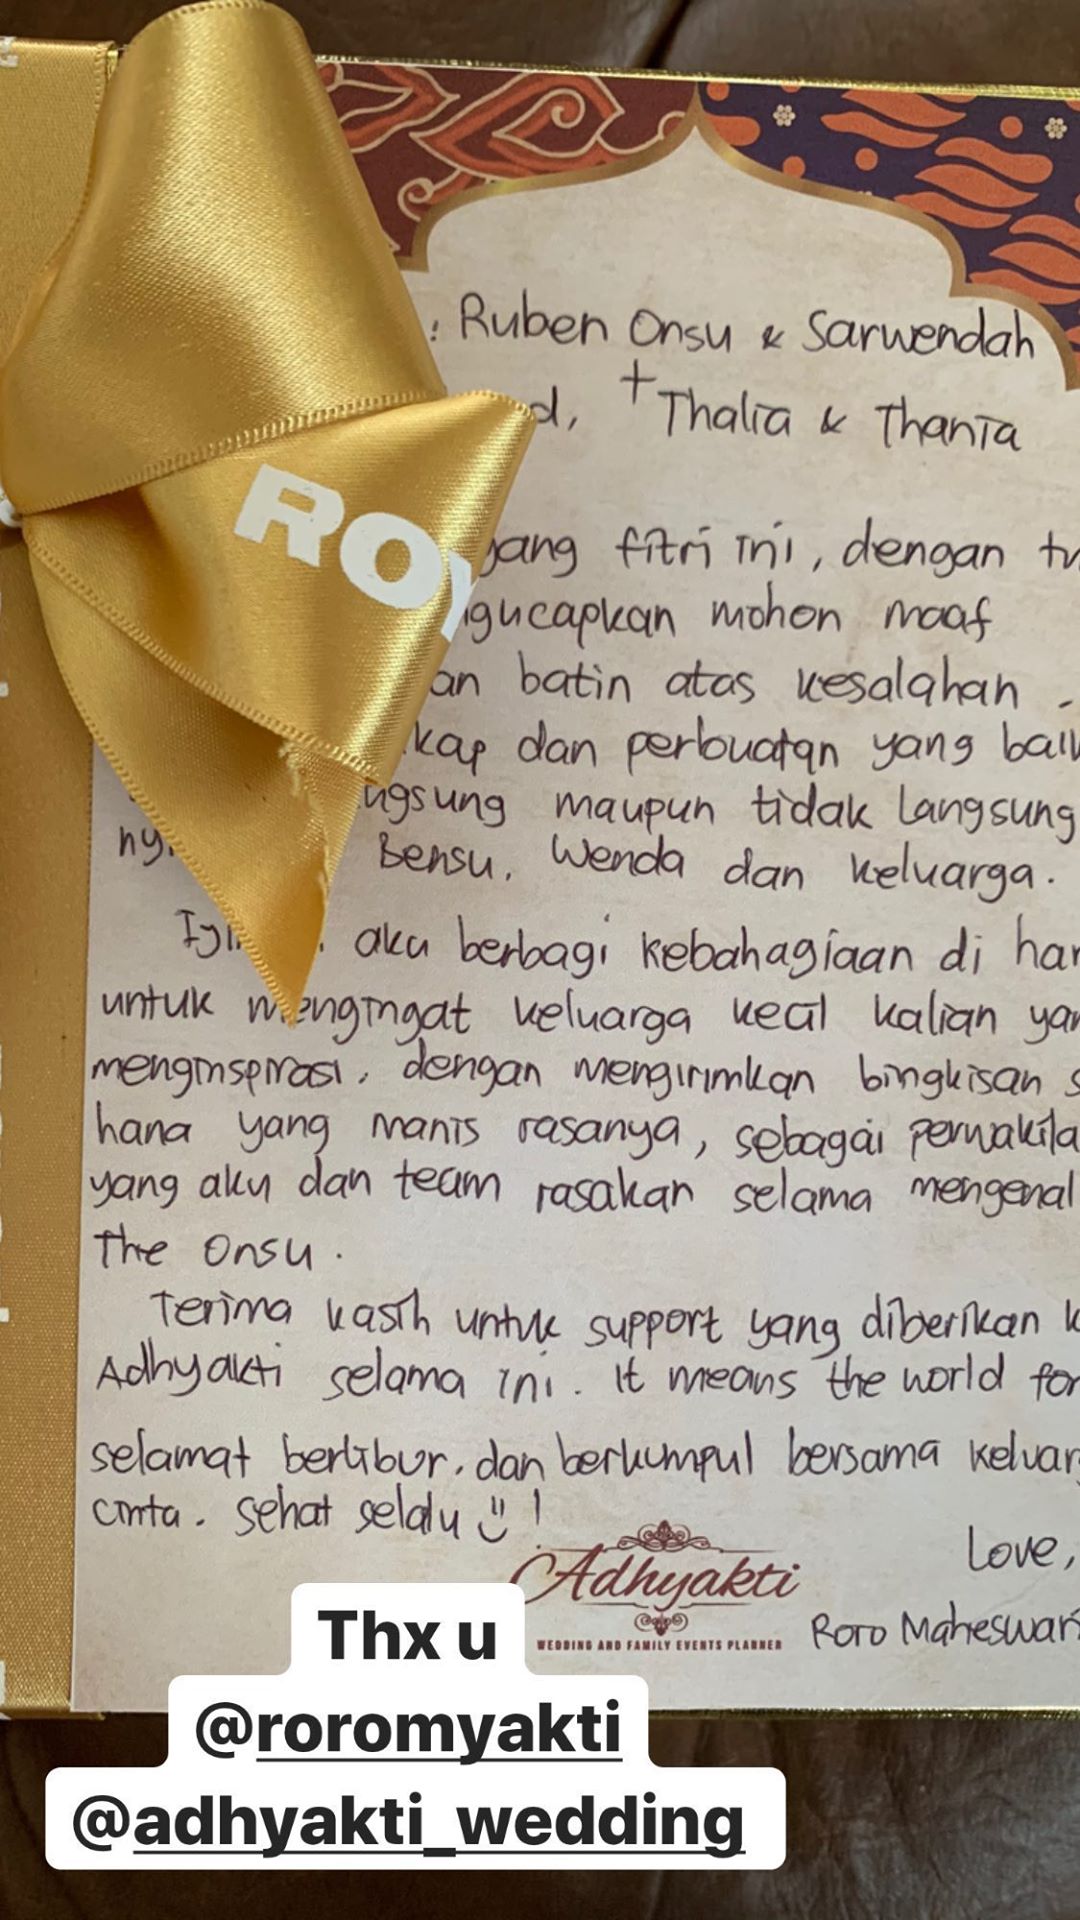 : Ruben Onsu & Sarwendah
d, + Thalia & Thania
yang fitri ini, dengan tu
ngucapkan mohon maaf
an batin atas kesalahan
kap dan perbuatan yang baik
ngsung maupun tidak langsung
ny Bensu, Wenda dan keluarga.
aku berbagi kebahagiaan di har
untuk mengingat keluarga kecil kalian yan
menginspirasi, dengan mengirimkan bingkisan s
hana yang manis rasanya, sebagai perwakila
yang aku dan team rasakan selama mengenal
The Onsu.
Terima kasih untuk support yang diberikan k
Adhyakti selama ini. It means the world for
selamat berlibur, dan berkumpul bersama keluar
cinta. sehat selalu !
Love,
Adhyakti
WEDDING AND FAMILY EVENTS PLANNER
Roro Maheswari
ROY
Thx u
@roromyakti
@adhyakti_wedding